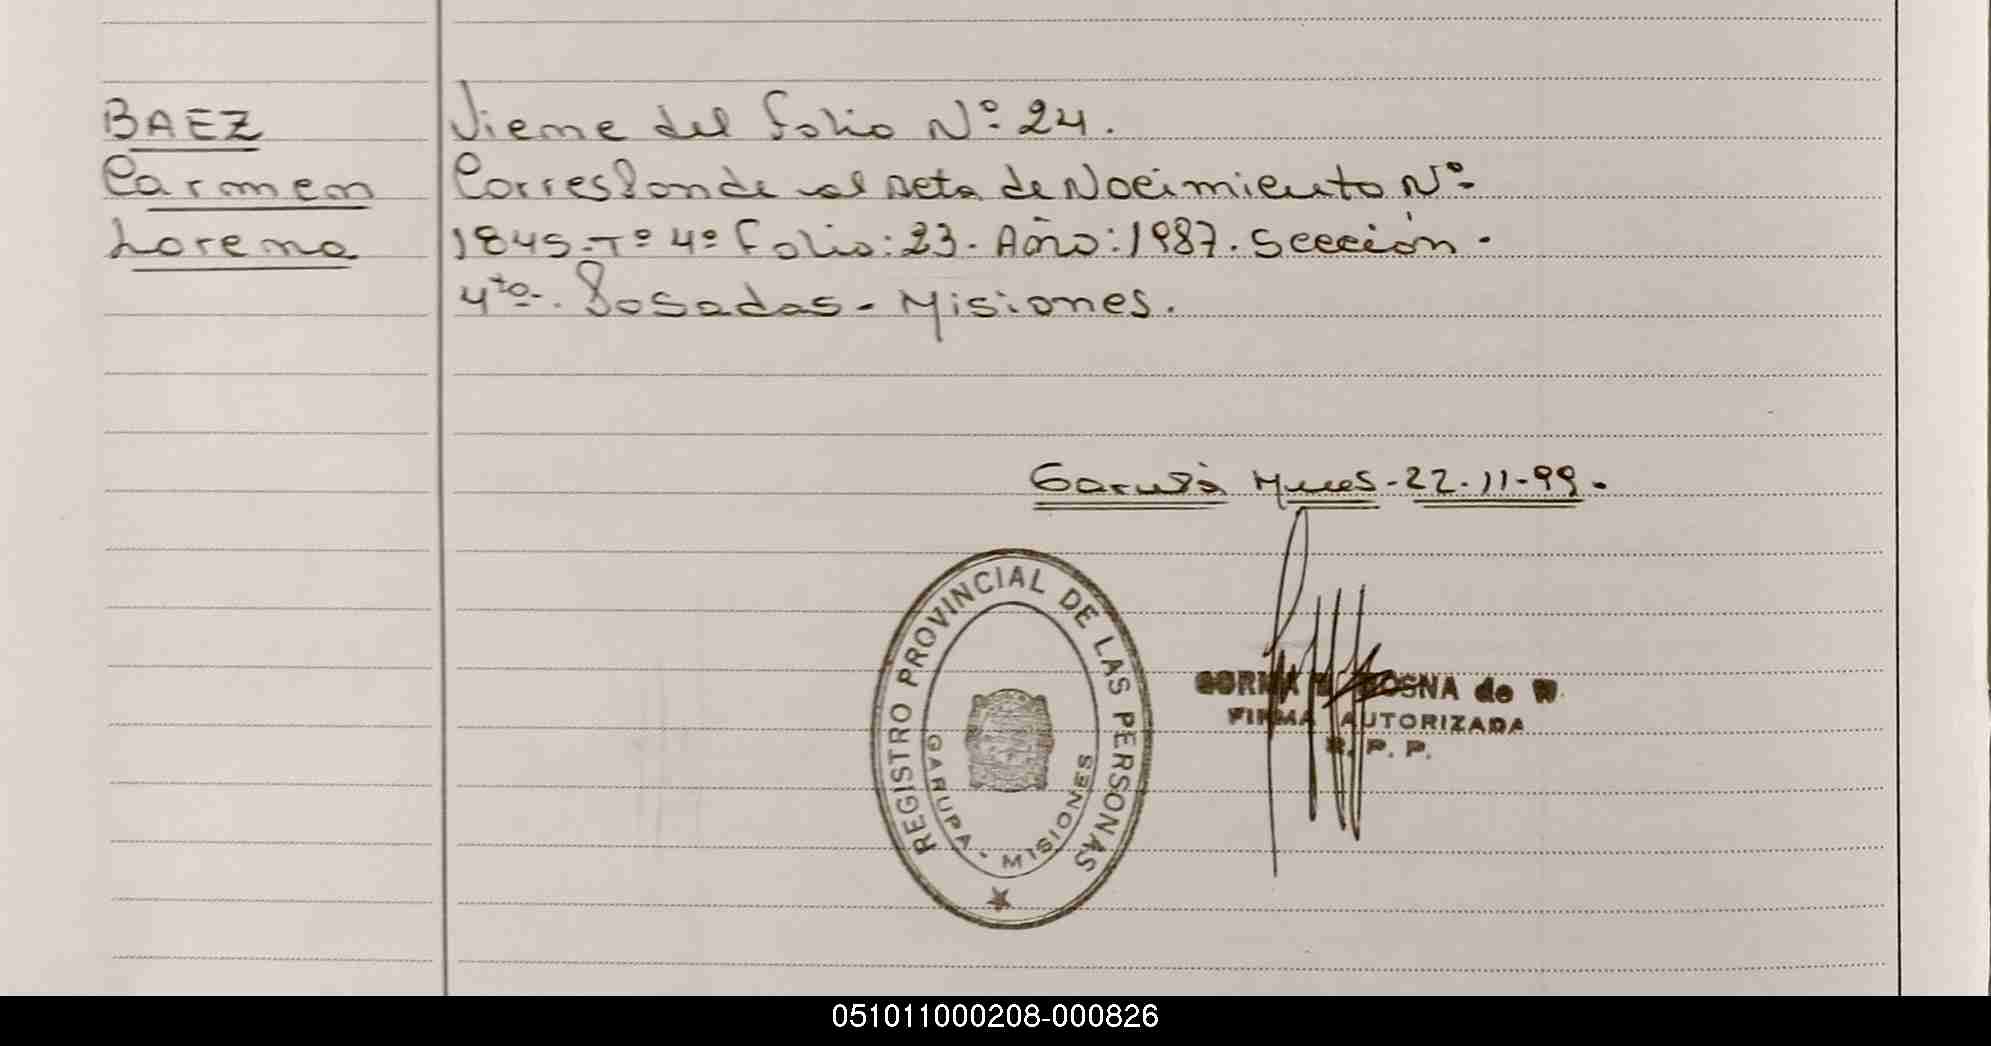 BAEZ
Carmen
Lorena
Viene del Folio Nº 24.
Corresponde al Acta de Nacimiento Nº
1845-Tº 4º Folio: 23. Año: 1987. Sección.
4ta. Posadas - Misiones.
Garupá Mnes - 22-11-99.
REGISTRO PROVINCIAL DE LAS PERSONAS
GARUPA - MISIONES
OSNA de W.
FIRMA AUTORIZADA
R. P. P.
051011000208-000826